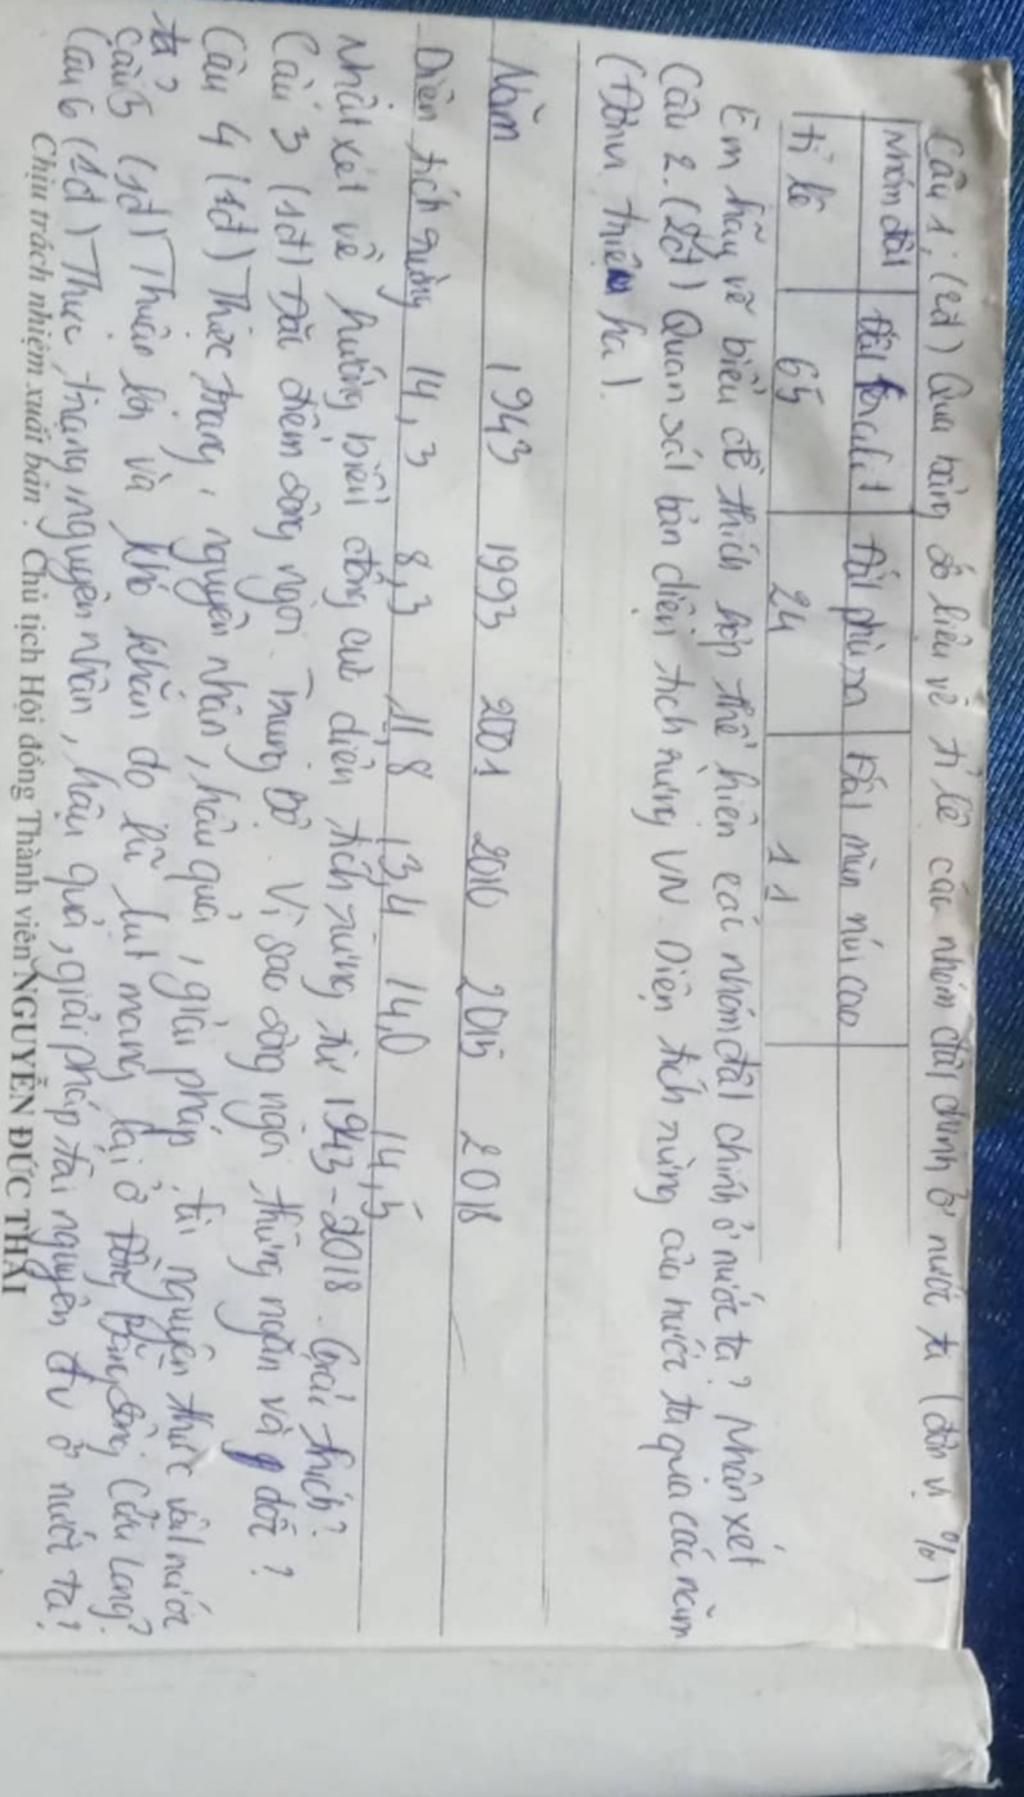 Câu 1; (2đ) Qua bảng số liệu về tỉ lệ các nhóm đất chính ở nước ta (đơn vị %)
Nhóm đất Đất feralit Đất phù sa Đất mùn núi cao
Tỉ lệ 65 24 11
Em hãy vẽ biểu đồ thích hợp thể hiện các nhóm đất chính ở nước ta? Nhận xét
Câu 2. (2đ) Quan sát bản diện tích rừng VN. Diện tích rừng của nước ta qua các năm
(Đơn vị triệu ha).
Năm 1943 1993 2001 2010 2015 2018
Diện tích rừng 14,3 8,3 11,8 13,4 14,0 14,5
Nhật xét về hướng biến động cư diện tích rừng từ 1943-2018. Giải thích?
Câu 3 (1đ) Đặc điểm sông ngòi Trung Bộ. Vì sao sông ngòi thường ngắn và dốc?
Câu 4 (1đ) Thực trạng, nguyên nhân, hậu quả, giải pháp tài nguyên thực vật nước
ta?
Câu 5 (1đ) Thuận lợi và khó khăn do lũ lụt mang lại ở Đồng bằng sông Cửu Long?
Câu 6 (1đ) Thực trạng, nguyên nhân, hậu quả, giải pháp tài nguyên đv ở nước ta?
Chịu trách nhiệm xuất bản: Chủ tịch Hội đồng Thành viên NGUYỄN ĐỨC THÁI